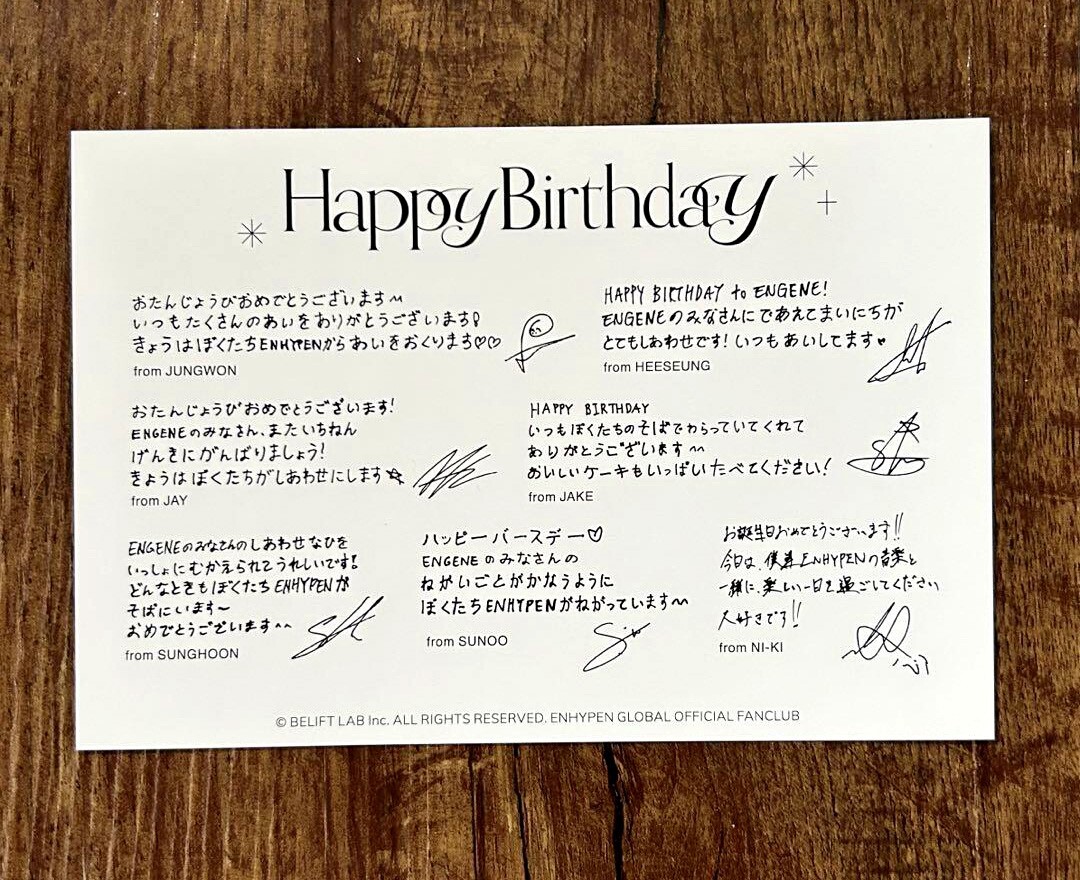 Happy Birthday
おたんじょうびおめでとうございます〜
いつもたくさんのあいをありがとうございます!
きょうはぼくたちENHYPENからあいをおくります♡♡
from JUNGWON
HAPPY BIRTHDAY to ENGENE!
ENGENEのみなさんにであえてまいにちが
とてもしあわせです! いつもあいしてます♥
from HEESEUNG
おたんじょうびおめでとうございます!
ENGENEのみなさん、またいちねん
げんきにがんばりましょう!
きょうはぼくたちがしあわせにします☆
from JAY
HAPPY BIRTHDAY
いつもぼくたちのそばでわらっていてくれて
ありがとうございます^^
おいしいケーキもいっぱいたべてください!
from JAKE
ENGENEのみなさんのしあわせなひを
いっしょにむかえられてうれしいです!
どんなときもぼくたちENHYPENが
そばにいます〜
おめでとうございます^^
from SUNGHOON
ハッピーバースデー♡
ENGENEのみなさんの
ねがいごとがかなうように
ぼくたちENHYPENがねがっています〜
from SUNOO
お誕生日おめでとうございます!!
今日は、僕達ENHYPENの音楽と
一緒に、楽しい一日を過ごしてください
大好きです!!
from NI-KI
© BELIFT LAB Inc. ALL RIGHTS RESERVED. ENHYPEN GLOBAL OFFICIAL FANCLUB